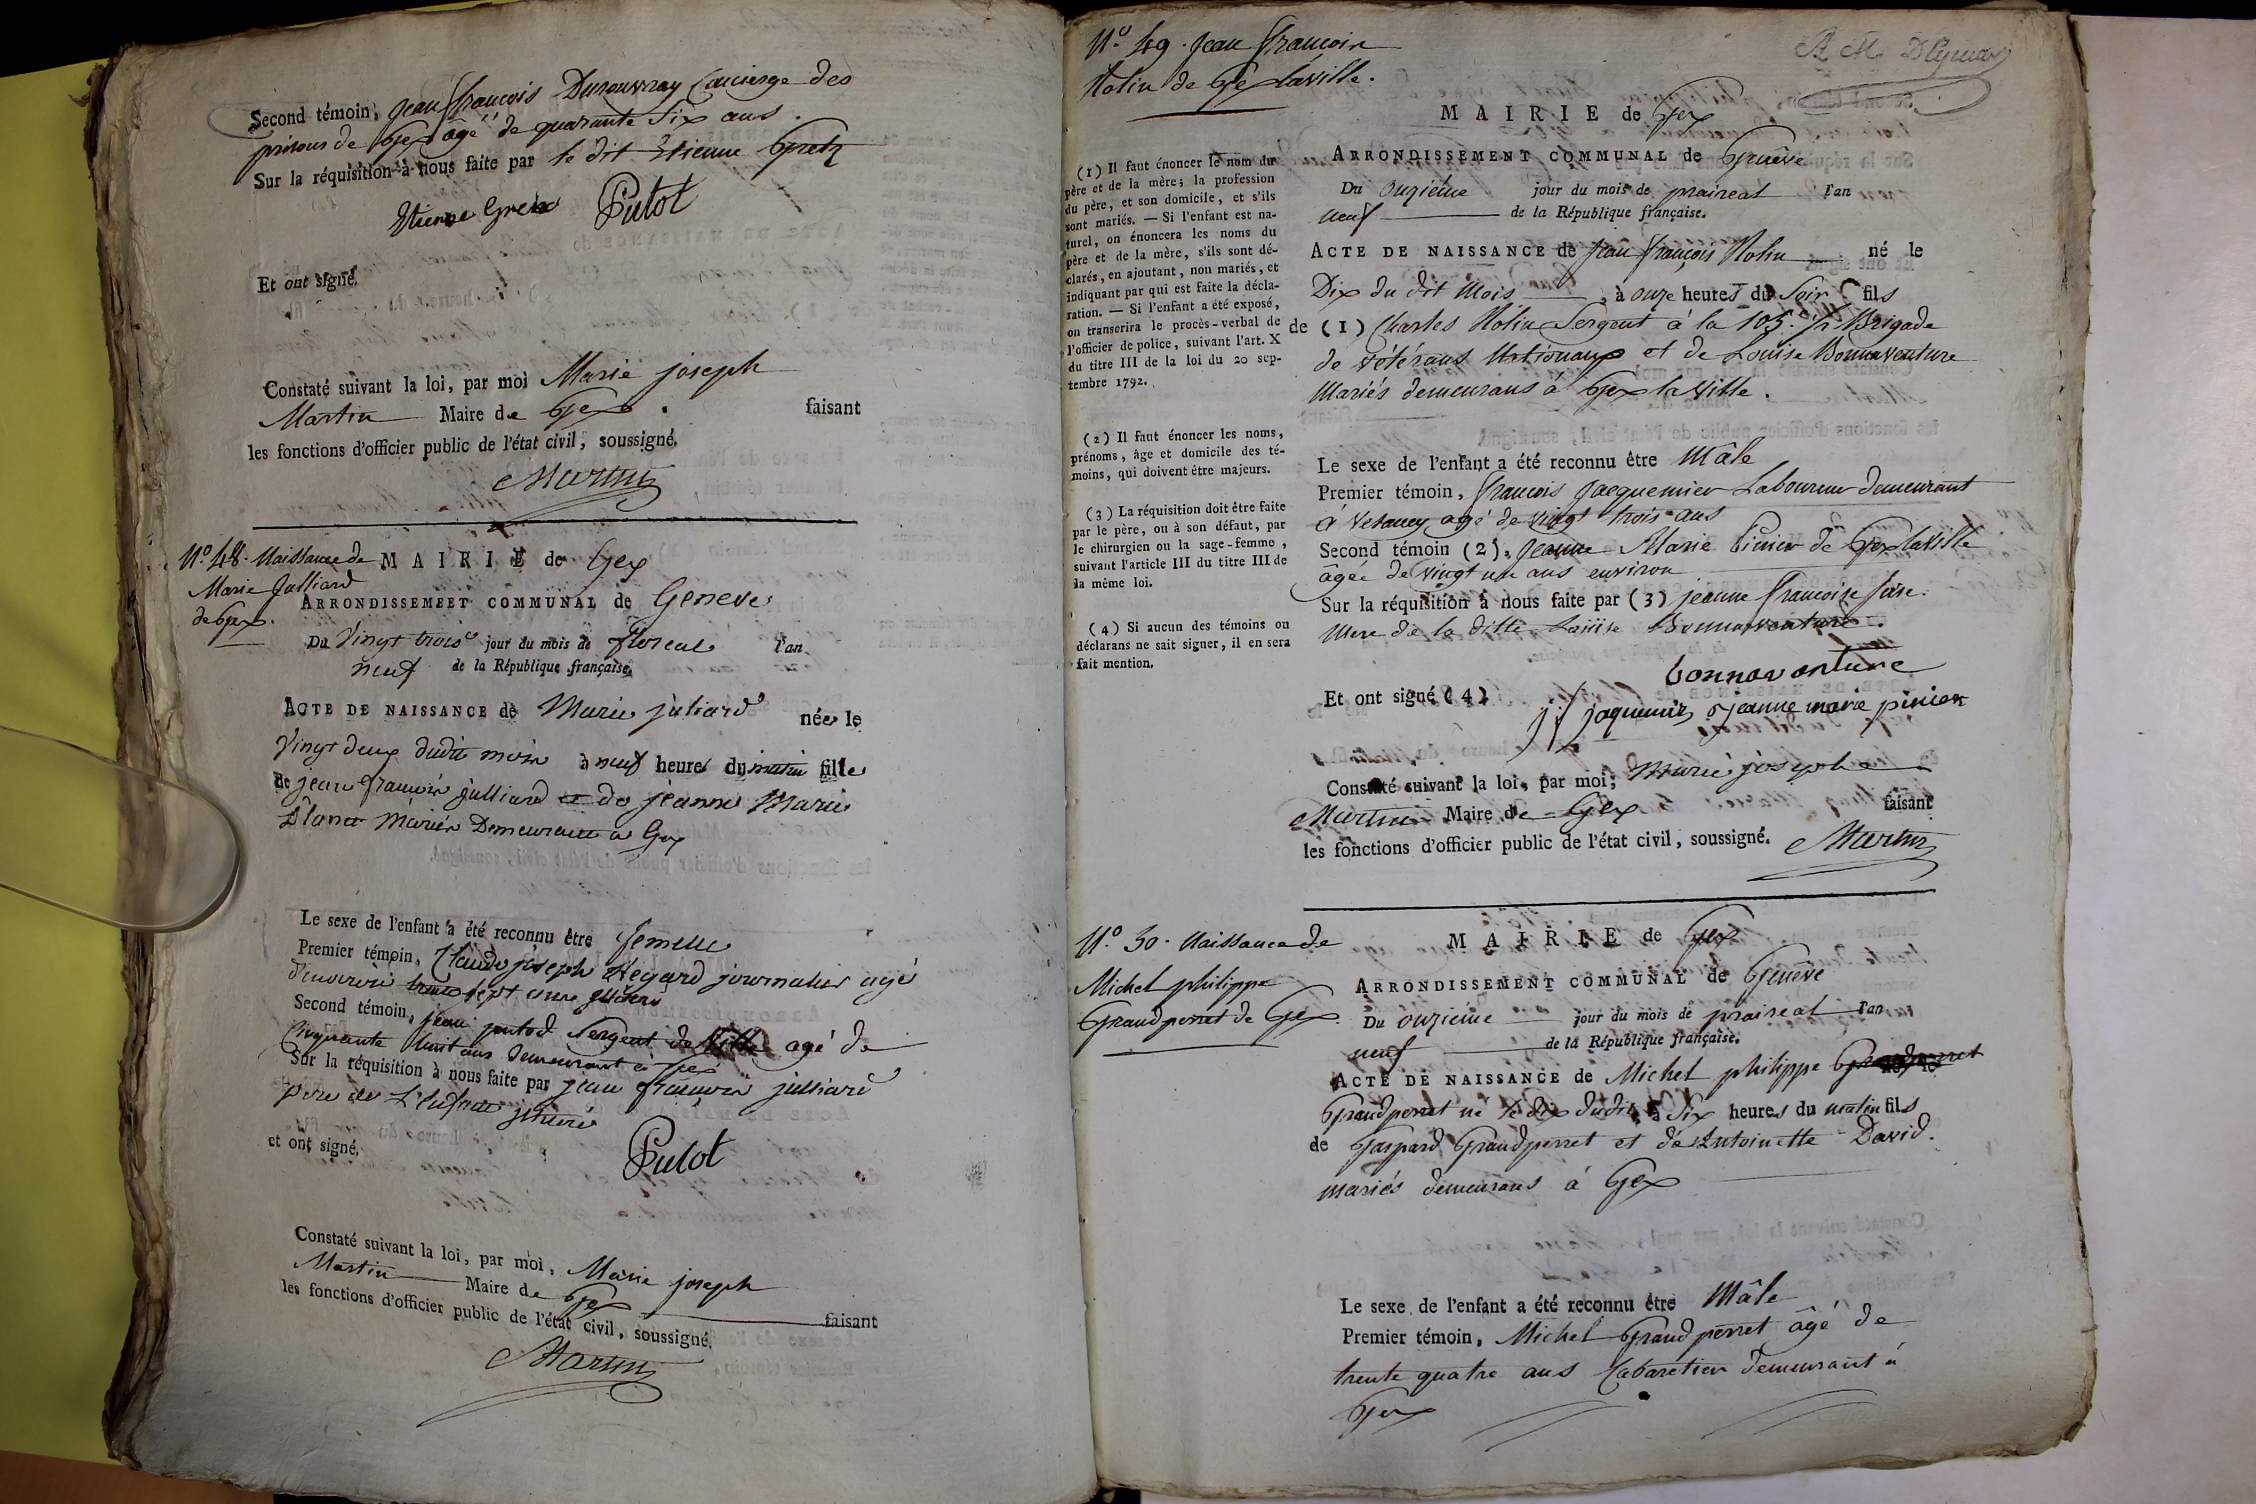 Second témoin, jean françois Durouvray Concierge des
prisons de Gex âgé de quarante Six ans.
Sur la réquisition à nous faite par le dit Etienne Gretz
Etienne Pulot
Et ont signé,
Constaté suivant la loi, par moi Marie joseph
Martin Maire de Gex. faisant
les fonctions d'officier public de l'état civil, soussigné.
Martin
N.° 48. Naissance de
Marie Julliard
de Gex.
MAIRIE de Gex
ARRONDISSEMEET COMMUNAL de Geneve
Du Vingt trois jour du mois de floreal l'an
neuf de la République française,
ACTE DE NAISSANCE de Marie juliard née le
Vingt deux dudit mois à neuf heures du matin fille
de jean françois julliard et de jeanne Marie
mariés Demeurant a Gex
Le sexe de l'enfant a été reconnu être femelle
Premier témoin, Claude joseph Regard journalier agé
d'environ trente sept ans
Second témoin, jean Sergent de Ville agé de
Cinquante huit ans demeurant a Gex
Sur la réquisition à nous faite par jean françois julliard
pere de L'enfant
et ont signé, Pulot
Constaté suivant la loi, par moi, Marie joseph
Martin Maire de Gex faisant
les fonctions d'officier public de l'état civil, soussigné.
Martin
N.° 49. Jean françois
Nolin de Gex laville.
MAIRIE de Gex
ARRONDISSEMENT COMMUNAL de Genêve
Du onziéme jour du mois de praireal l'an
neuf de la République française.
ACTE DE NAISSANCE de jean françois Nolin né le
Dix du dit Mois, à onze heures du Soir fils
de (1) Charles Nolin Sergent à la 105.e 1/2 Brigade
de vétérans Nationaux et de Louise Bonnaventure
Mariés demeurans à Gex la ville.
Le sexe de l'enfant a été reconnu être Mâle
Premier témoin, françois Jacquemier Laboureur demeurant
à Vesancy agé de vingt trois ans
Second témoin (2), Jeanne Marie Pinier de Gex laville
âgée de vingt un ans environ
Sur la réquisition à nous faite par (3) jeanne francoise
Mere de la ditte Louise Bonnaventure.
bonnavanture
Et ont signé (4) j f jaquemier jeanne marie pinier
Constaté suivant la loi, par moi; Marie joseph
Martin Maire de Gex faisant
les fonctions d'officier public de l'état civil, soussigné. Martin
(1) Il faut énoncer le nom du
père et de la mère; la profession
du père, et son domicile, et s'ils
sont mariés. — Si l'enfant est na-
turel, on énoncera les noms du
père et de la mère, s'ils sont dé-
clarés, en ajoutant, non mariés, et
indiquant par qui est faite la décla-
ration. — Si l'enfant a été exposé,
on transcrira le procès-verbal de
l'officier de police, suivant l'art. X
du titre III de la loi du 20 sep-
tembre 1792.
(2) Il faut énoncer les noms,
prénoms, âge et domicile des té-
moins, qui doivent être majeurs.
(3) La réquisition doit être faite
par le père, ou à son défaut, par
le chirurgien ou la sage-femme,
suivant l'article III du titre III de
la même loi.
(4) Si aucun des témoins ou
déclarans ne sait signer, il en sera
fait mention.
N.° 50. Naissance de
Michel philippe
Grandperret de Gex.
MAIRIE de Gex
ARRONDISSEMENT COMMUNAL de Genêve
Du onziéme jour du mois de praireal l'an
neuf de la République française.
ACTE DE NAISSANCE de Michel philippe Grandperret né le
Grandperret né le dix dudit à Six heures du matin fils
de Gaspard Grandperret et de Antoinette David.
mariés demeurans à Gex
Le sexe de l'enfant a été reconnu être Mâle
Premier témoin, Michel Grandperret âgé de
trente quatre ans Cabaretier demeurant à
Gex